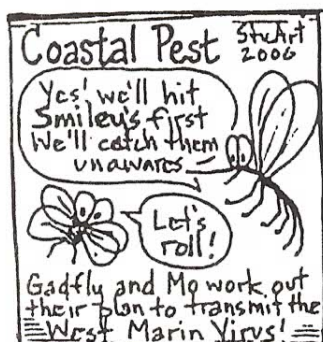 Coastal Pest
StuArt
2006
Yes! we'll hit
Smiley's first
We'll catch them
unawares
Let's
roll!
Gadfly and Mo work out
their plan to transmit the
West Marin Virus!